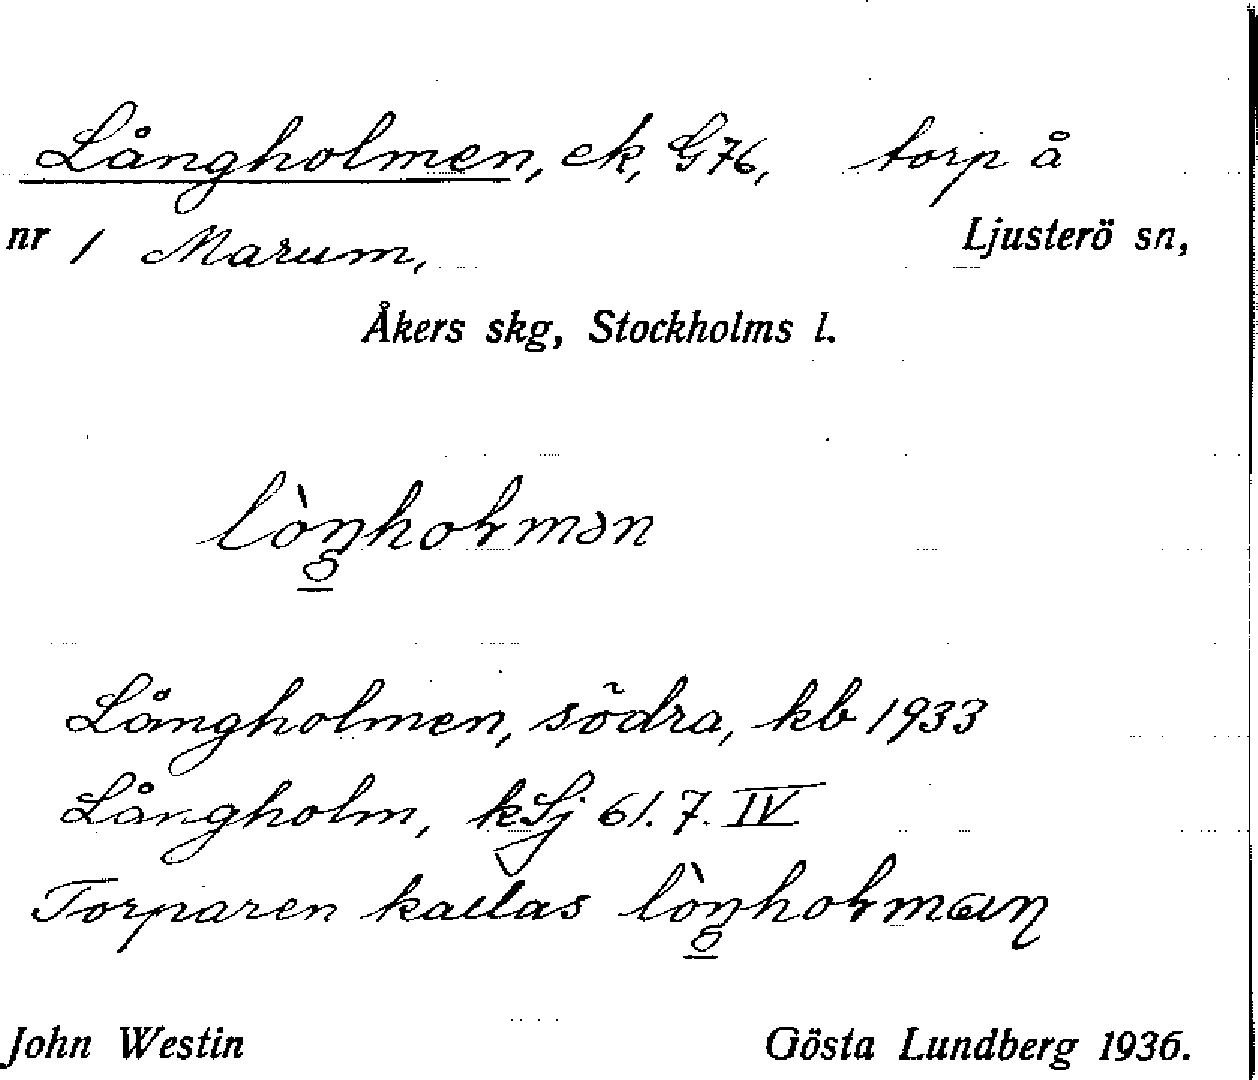 Långholmen, ek, G76, torp å
nr 1 Marum, Ljusterö sn,
Åkers skg, Stockholms l.
lòŋhoɫmən
Långholmen, södra, kb 1933
Långholm, kSj 61.7.IV
Torparen kallas lòŋhoɫman
John Westin Gösta Lundberg 1936.